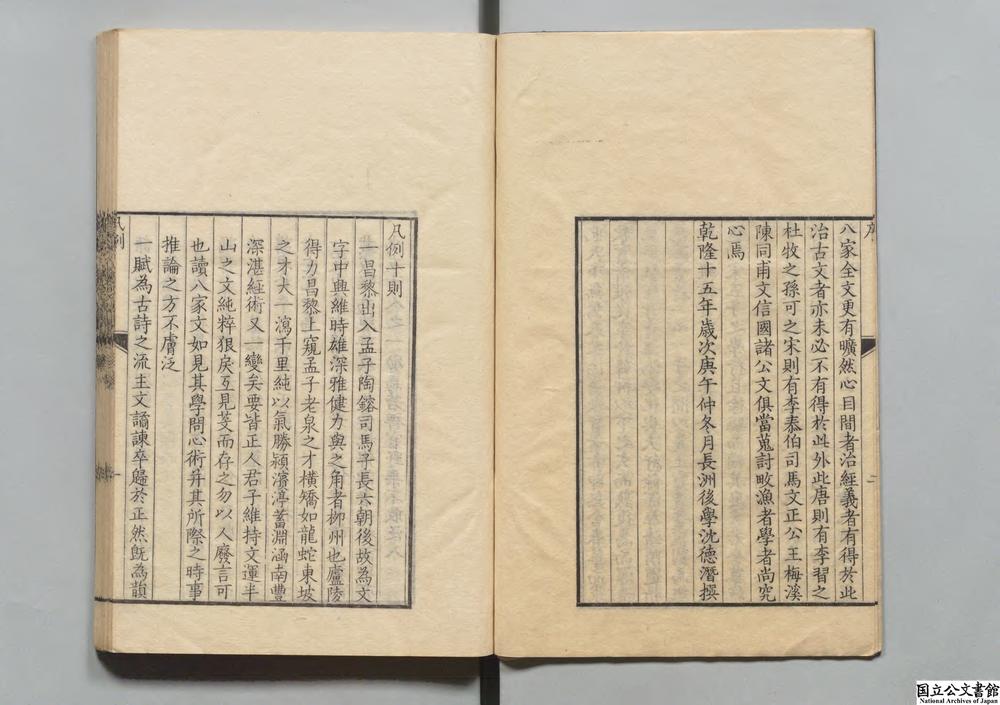 八家全文更有曠然心目間者治經義者有得於此
治古文者亦未必不有得於此外此唐則有李習之
杜牧之孫可之宋則有李泰伯司馬文正公王梅溪
陳同甫文信國諸公文俱當蒐討畋漁者學者尚究
心焉
乾隆十五年歲次庚午仲冬月長洲後學沈德潛撰
二
凡例十則
一昌黎出入孟子陶鎔司馬子長六朝後故為文
字中興維時雄深雅健力與之角者柳州也廬陵
得力昌黎上窺孟子老泉之才橫矯如龍蛇東坡
之才大一瀉千里純以氣勝潁濱渟蓄淵涵南豐
深湛經術又一變矣要皆正人君子維持文運半
山之文純粹狠戾互見芟而存之勿以人廢言可
也讀八家文如見其學問心術并其所際之時事
推論之方不膚泛
一賦為古詩之流主文譎諫卒歸於正然既為韻
凡例
一
国立公文書館
National Archives of Japan